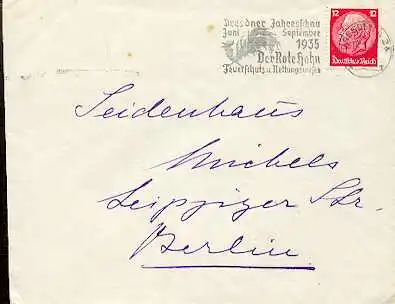 Dresdner Jahresschau
Juni September
1935
Der Rote Hahn
Feuerschutz u. Rettungswesen
12 12
Deutsches Reich
Seidenhaus
Michels
Leipziger Str.
Berlin